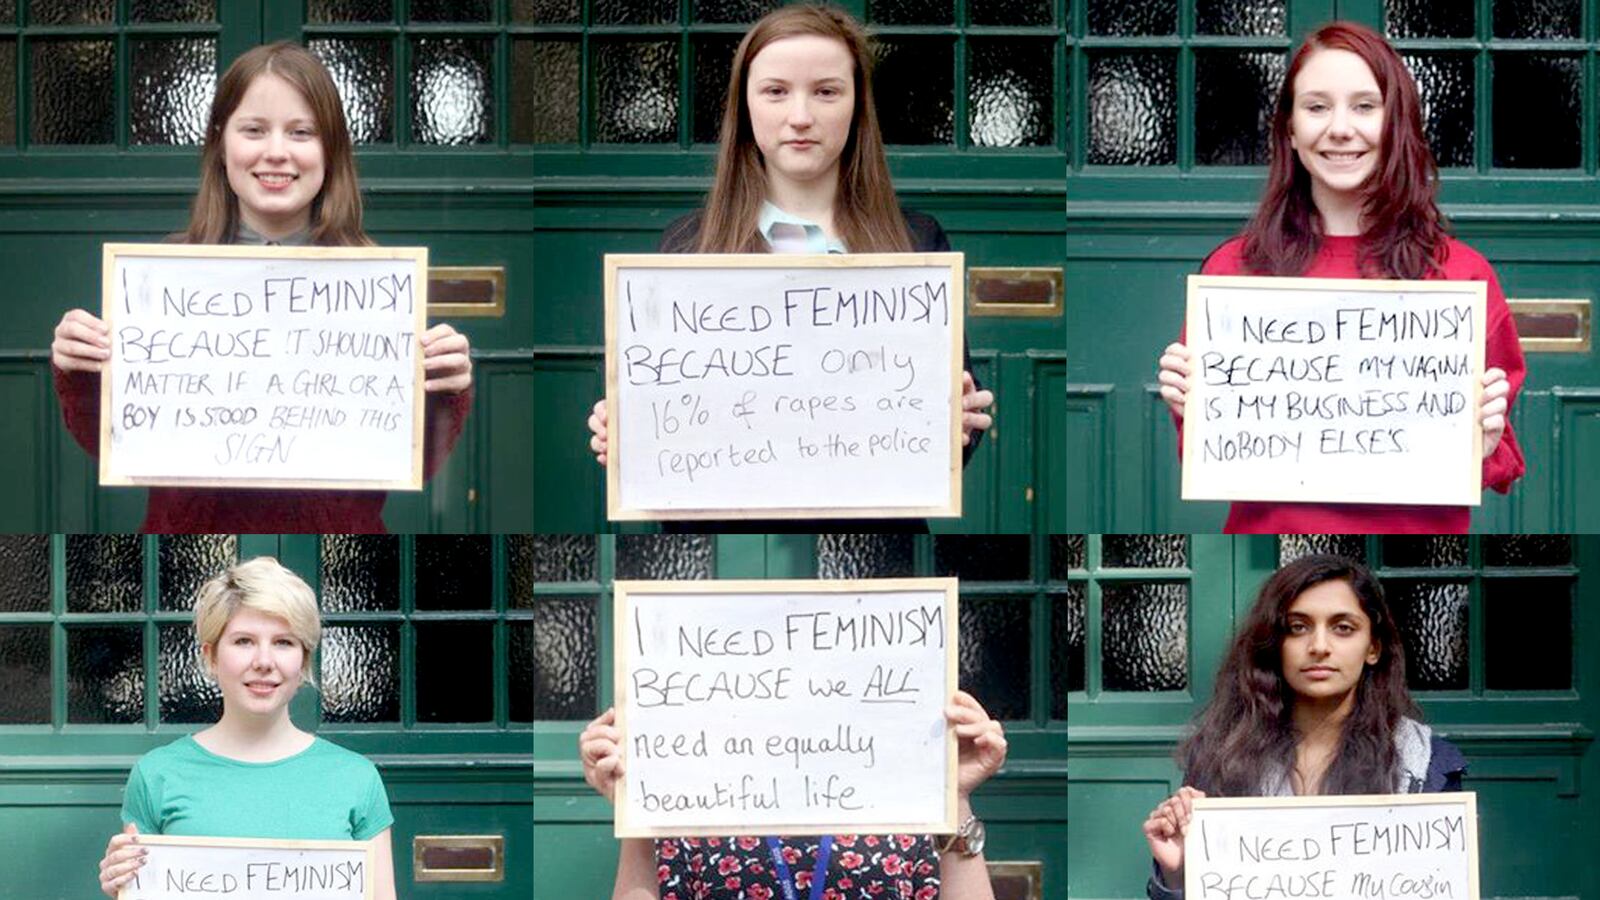 I NEED FEMINISM
BECAUSE IT SHOULDN'T
MATTER IF A GIRL OR A
BOY IS STOOD BEHIND THIS
SIGN
I NEED FEMINISM
BECAUSE only
16% of rapes are
reported to the police
I NEED FEMINISM
BECAUSE MY VAGINA
IS MY BUSINESS AND
NOBODY ELSE'S.
I NEED FEMINISM
I NEED FEMINISM
BECAUSE we ALL
need an equally
beautiful life.
I NEED FEMINISM
BECAUSE My Cousin